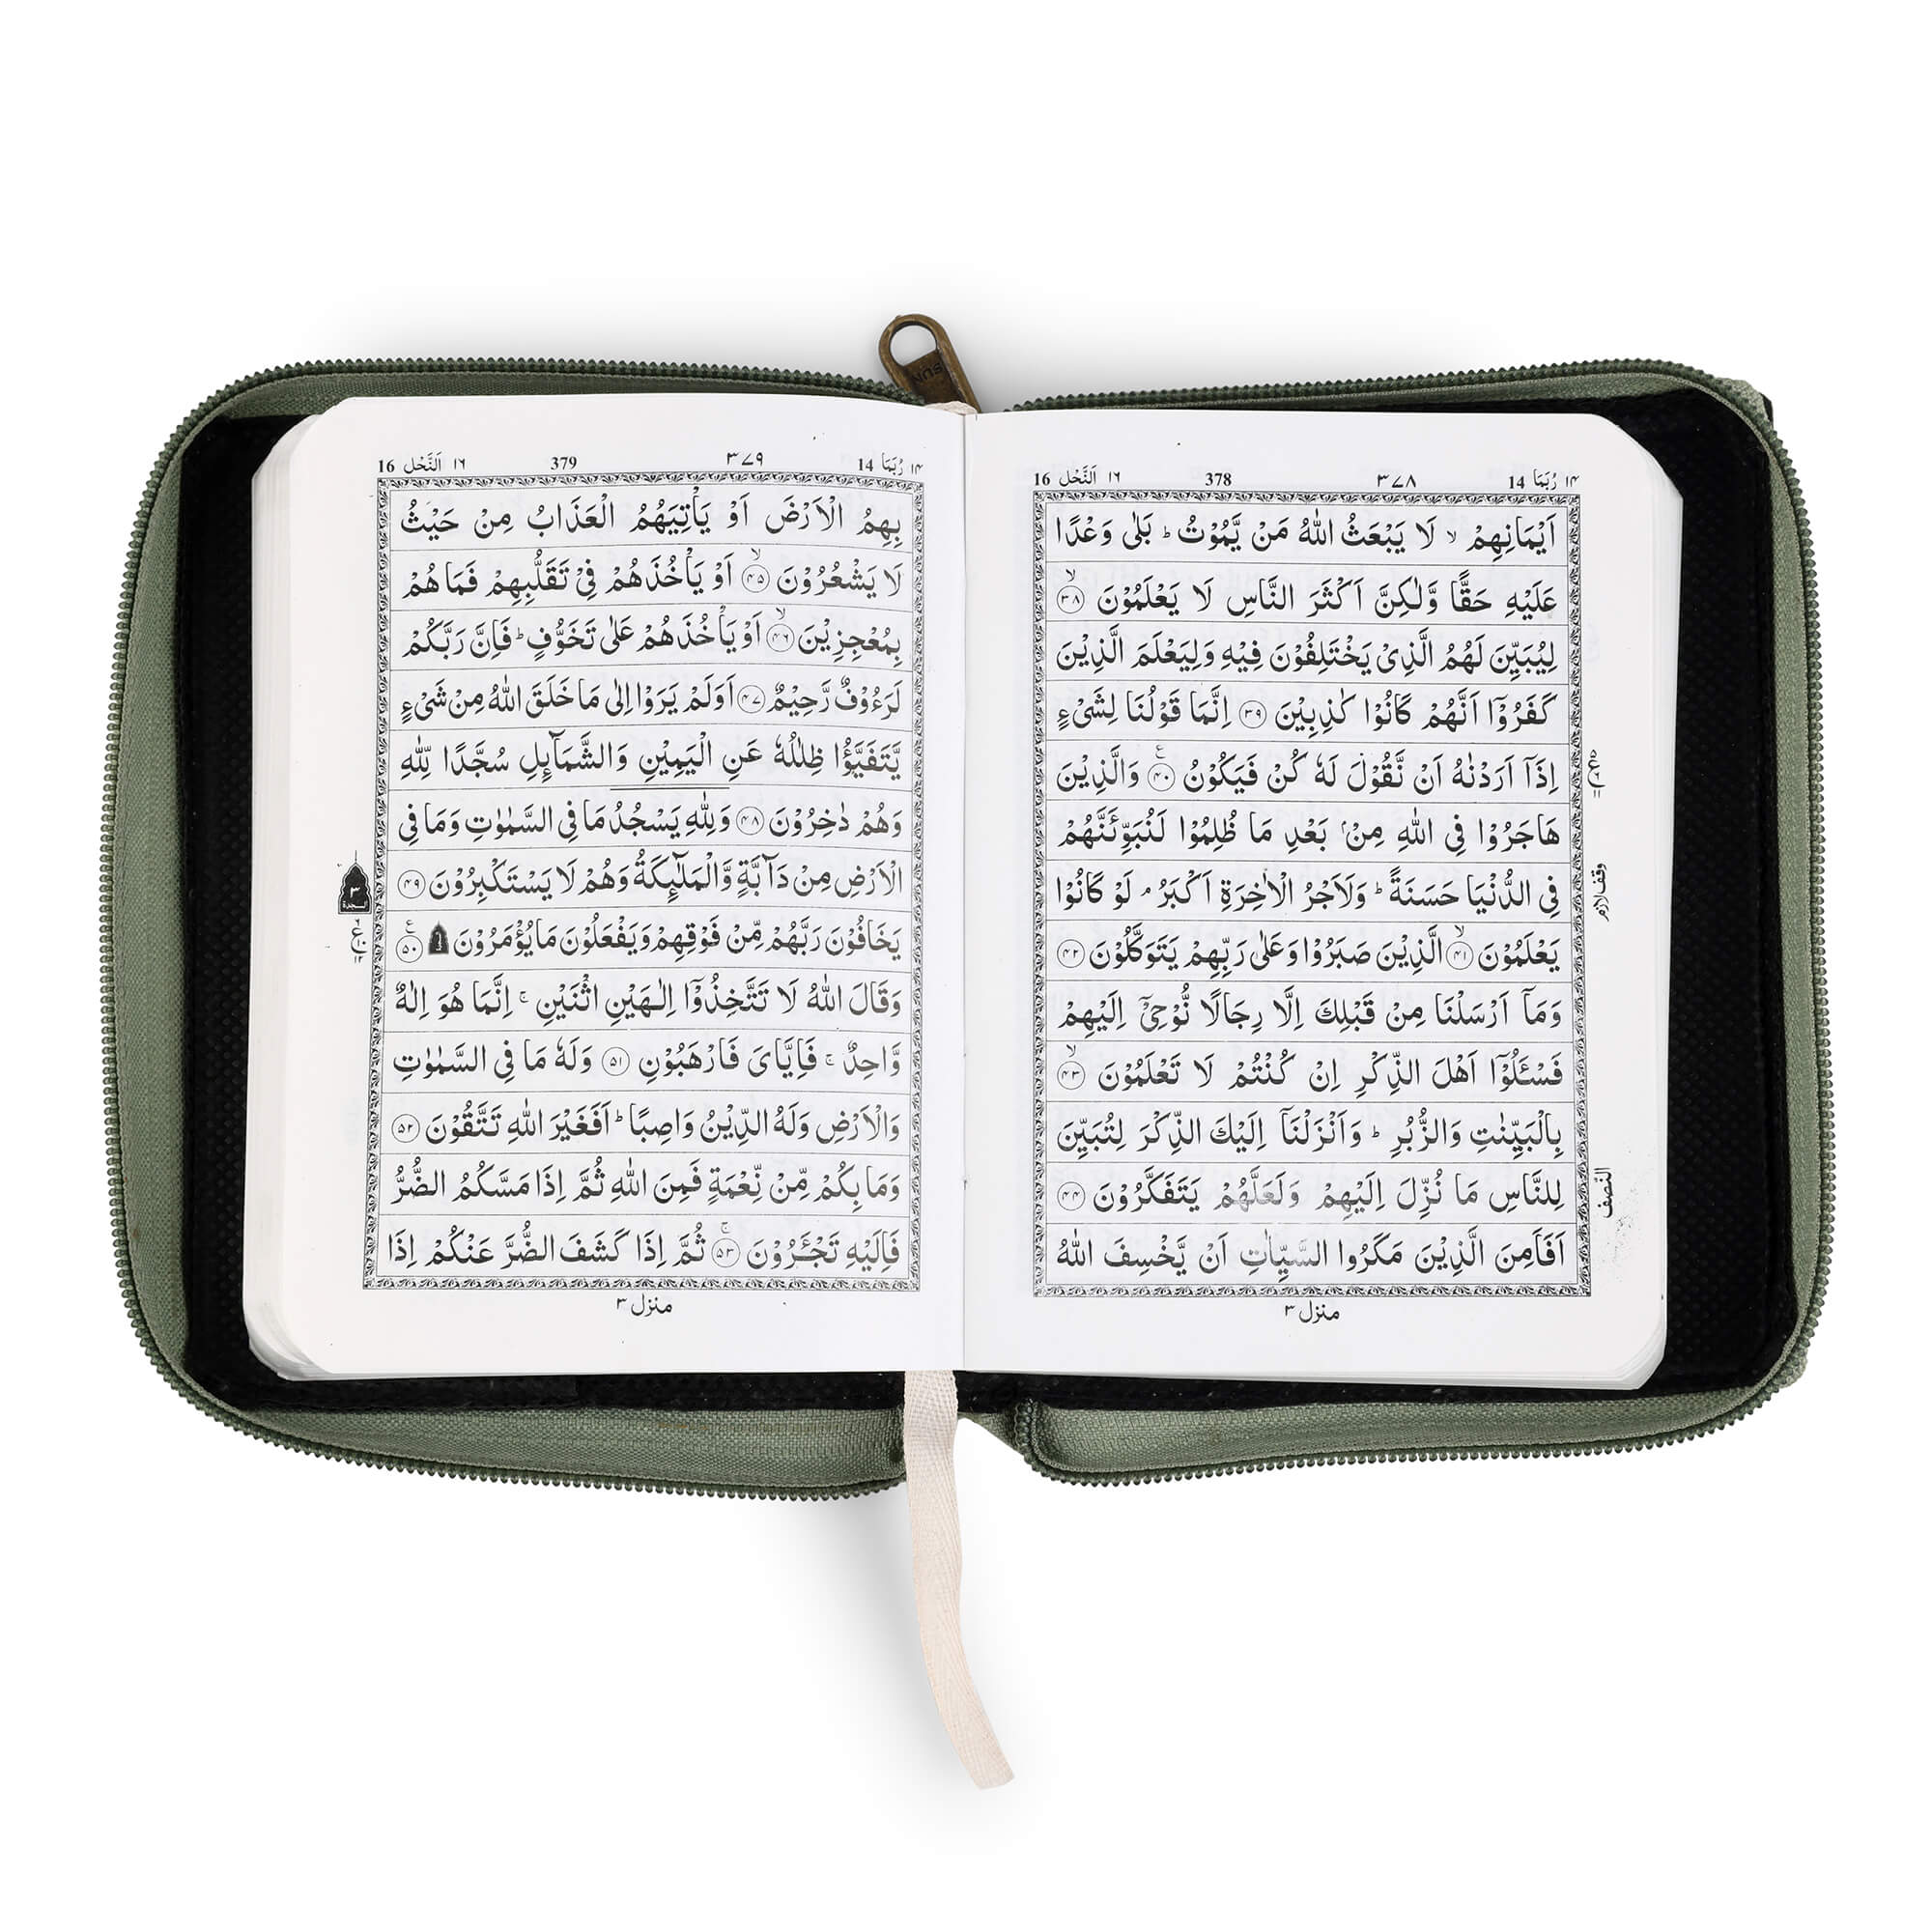 ١٤ رُبَمَا 14 ٣٧٨ 378 ١٦ اَلنَّحْل 16
اَيْمَانِهِمْ ۙ لَا يَبْعَثُ اللّٰهُ مَنْ يَّمُوْتُ ؕ بَلٰى وَعْدًا
عَلَيْهِ حَقًّا وَّلٰكِنَّ اَكْثَرَ النَّاسِ لَا يَعْلَمُوْنَ ۙ﴿٣٨﴾
لِيُبَيِّنَ لَهُمُ الَّذِىْ يَخْتَلِفُوْنَ فِيْهِ وَلِيَعْلَمَ الَّذِيْنَ
كَفَرُوْۤا اَنَّهُمْ كَانُوْا كٰذِبِيْنَ ﴿٣٩﴾ اِنَّمَا قَوْلُنَا لِشَىْءٍ
اِذَاۤ اَرَدْنٰهُ اَنْ نَّقُوْلَ لَهٗ كُنْ فَيَكُوْنُ ﴿٤٠﴾ ع وَالَّذِيْنَ
هَاجَرُوْا فِى اللّٰهِ مِنْۢ بَعْدِ مَا ظُلِمُوْا لَنُبَوِّئَنَّهُمْ
فِى الدُّنْيَا حَسَنَةً ؕ وَلَاَجْرُ الْاٰخِرَةِ اَكْبَرُ ۘ لَوْ كَانُوْا
وقف لازم
يَعْلَمُوْنَ ۙ﴿٤١﴾ الَّذِيْنَ صَبَرُوْا وَعَلٰى رَبِّهِمْ يَتَوَكَّلُوْنَ ﴿٤٢﴾
وَمَاۤ اَرْسَلْنَا مِنْ قَبْلِكَ اِلَّا رِجَالًا نُّوْحِىْۤ اِلَيْهِمْ
فَسْـَٔلُوْۤا اَهْلَ الذِّكْرِ اِنْ كُنْتُمْ لَا تَعْلَمُوْنَ ۙ﴿٤٣﴾
بِالْبَيِّنٰتِ وَالزُّبُرِ ؕ وَاَنْزَلْنَاۤ اِلَيْكَ الذِّكْرَ لِتُبَيِّنَ
لِلنَّاسِ مَا نُزِّلَ اِلَيْهِمْ وَلَعَلَّهُمْ يَتَفَكَّرُوْنَ ﴿٤٤﴾
النصف
اَفَاَمِنَ الَّذِيْنَ مَكَرُوا السَّيِّاٰتِ اَنْ يَّخْسِفَ اللّٰهُ
منزل ٣
١٤ رُبَمَا 14 ٣٧٩ 379 ١٦ اَلنَّحْل 16
بِهِمُ الْاَرْضَ اَوْ يَاْتِيَهُمُ الْعَذَابُ مِنْ حَيْثُ
لَا يَشْعُرُوْنَ ۙ﴿٤٥﴾ اَوْ يَاْخُذَهُمْ فِىْ تَقَلُّبِهِمْ فَمَا هُمْ
بِمُعْجِزِيْنَ ۙ﴿٤٦﴾ اَوْ يَاْخُذَهُمْ عَلٰى تَخَوُّفٍ ؕ فَاِنَّ رَبَّكُمْ
لَرَءُوْفٌ رَّحِيْمٌ ﴿٤٧﴾ اَوَلَمْ يَرَوْا اِلٰى مَا خَلَقَ اللّٰهُ مِنْ شَىْءٍ
يَّتَفَيَّؤُا ظِلٰلُهٗ عَنِ الْيَمِيْنِ وَالشَّمَآئِلِ سُجَّدًا لِّلّٰهِ
وَهُمْ دٰخِرُوْنَ ﴿٤٨﴾ وَلِلّٰهِ يَسْجُدُ مَا فِى السَّمٰوٰتِ وَمَا فِى
الْاَرْضِ مِنْ دَآبَّةٍ وَّالْمَلٰٓئِكَةُ وَهُمْ لَا يَسْتَكْبِرُوْنَ ﴿٤٩﴾
٣ السجدة
يَخَافُوْنَ رَبَّهُمْ مِّنْ فَوْقِهِمْ وَيَفْعَلُوْنَ مَا يُؤْمَرُوْنَ ۩ ﴿٥٠﴾ ع
وَقَالَ اللّٰهُ لَا تَتَّخِذُوْۤا اِلٰـهَيْنِ اثْنَيْنِ ۚ اِنَّمَا هُوَ اِلٰهٌ
وَّاحِدٌ ۚ فَاِيَّاىَ فَارْهَبُوْنِ ﴿٥١﴾ وَلَهٗ مَا فِى السَّمٰوٰتِ
وَالْاَرْضِ وَلَهُ الدِّيْنُ وَاصِبًا ؕ اَفَغَيْرَ اللّٰهِ تَتَّقُوْنَ ﴿٥٢﴾
وَمَا بِكُمْ مِّنْ نِّعْمَةٍ فَمِنَ اللّٰهِ ثُمَّ اِذَا مَسَّكُمُ الضُّرُّ
فَاِلَيْهِ تَجْـَٔرُوْنَ ۚ﴿٥٣﴾ ثُمَّ اِذَا كَشَفَ الضُّرَّ عَنْكُمْ اِذَا
منزل ٣